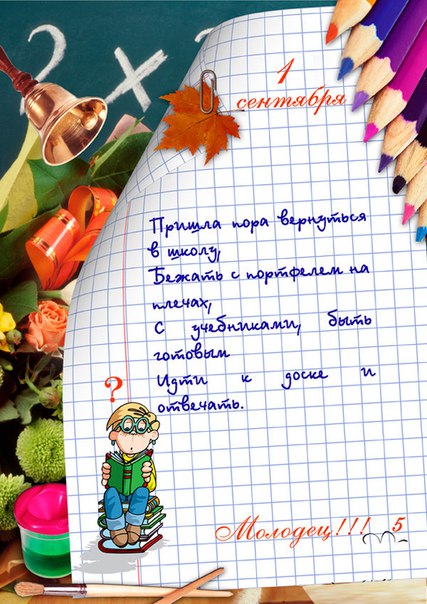 2 x
1
сентября
Пришла пора вернуться
в школу,
Бежать с портфелем на
плечах,
С учебниками, быть
готовым
Идти к доске и
отвечать.
?
Молодец!!! 5